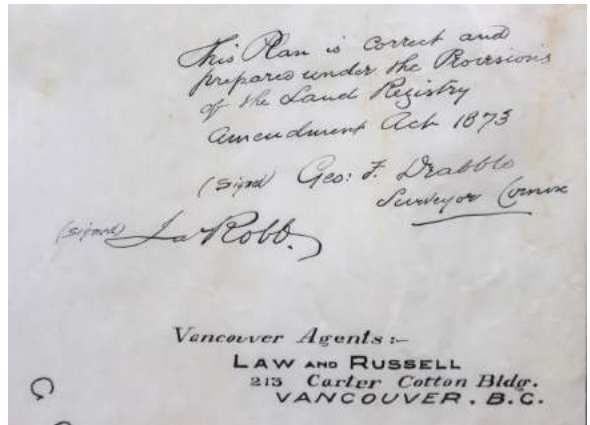 This Plan is correct and
prepared under the Provisions
of the Land Registry
Amendment Act 1873
(Signed) Geo: F. Drabble
Surveyor Comox
(signed) Robb.
Vancouver Agents :-
LAW AND RUSSELL
213 Carter Cotton Bldg.
VANCOUVER. B.C.